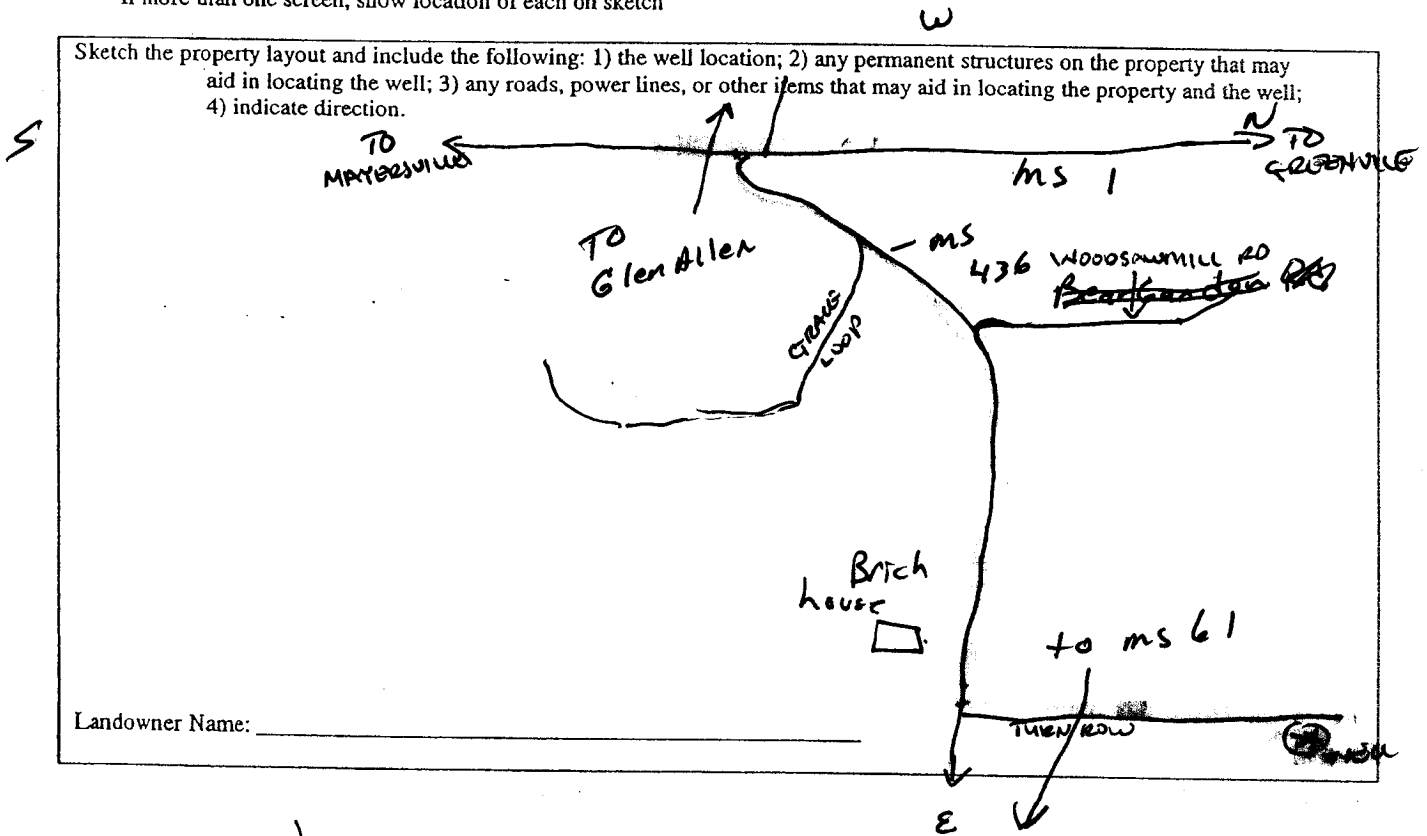 If more than one screen, show location of each on sketch
W
Sketch the property layout and include the following: 1) the well location; 2) any permanent structures on the property that may
aid in locating the well; 3) any roads, power lines, or other items that may aid in locating the property and the well;
4) indicate direction.
S
N
TO
MAYERSVILLE
TO
GREENVILLE
MS 1
TO
Glen Allen
MS
436
WOODSAWMILL RD
LOOP
Brick
house
to MS 61
TURN ROW
WELL
Landowner Name:
E